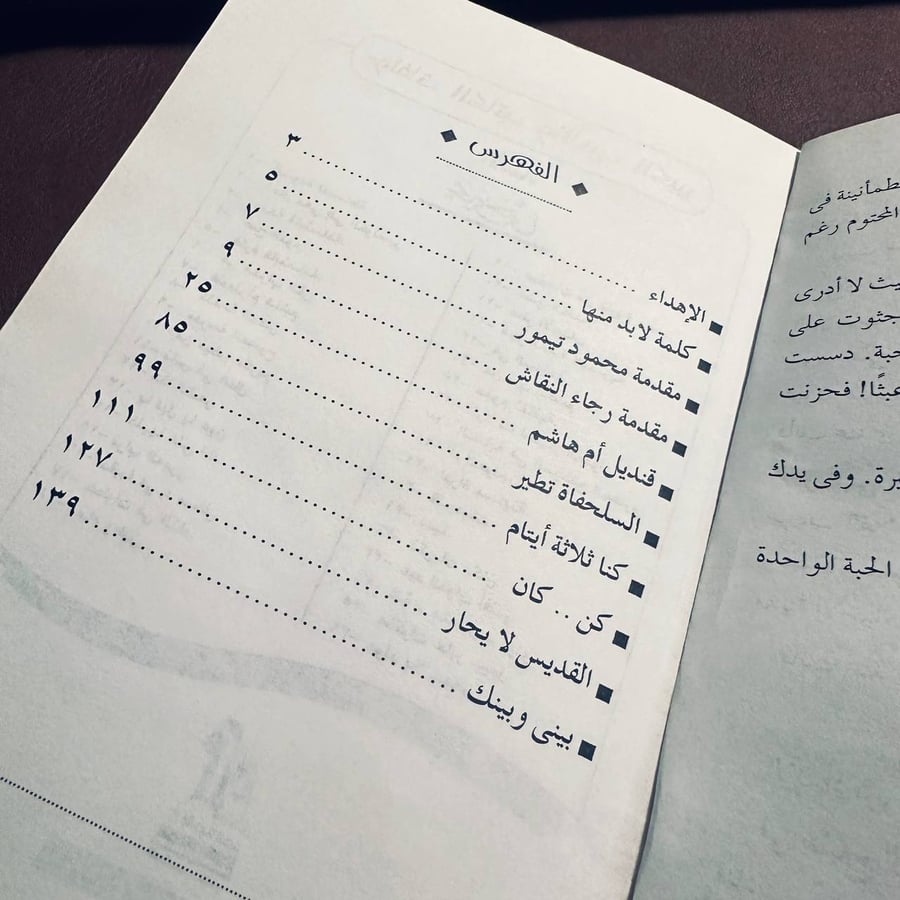 الفهرس
الإهداء ........ ٣
كلمة لابد منها ........ ٥
مقدمة محمود تيمور ........ ٧
مقدمة رجاء النقاش ........ ٩
قنديل أم هاشم ........ ٢٥
السلحفاة تطير ........ ٨٥
كنا ثلاثة أيتام ........ ٩٩
كن .. كان ........ ١١١
القديس لا يحار ........ ١٢٧
بينى وبينك ........ ١٣٩
فى
المحتوم رغم
لا أدرى
على
دسست
عبثًا! فحزنت
وفى يدك
الحبة الواحدة